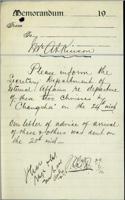 Memorandum. 19
From
To
Mr Atkinson
Please inform the
Secretary Department of
External Affairs re departure
of these two Chinese by
"Changsha" on the 24th inst
Our letter of advice of arrival
of these & others was sent on
the 21st inst.